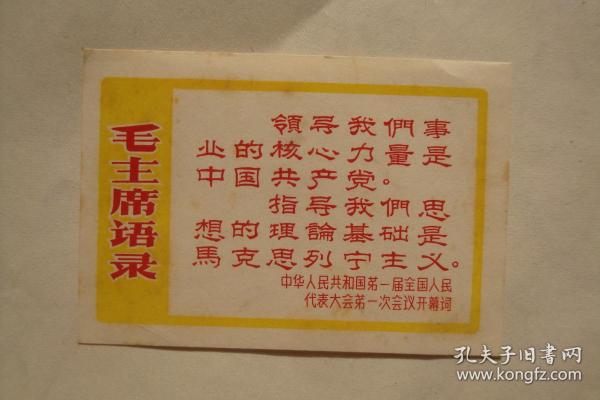 毛主席语录
領导我們事
业的核心力量是
中国共产党。
指导我們思
想的理論基础是
馬克思列宁主义。
中华人民共和国第一届全国人民
代表大会第一次会议开幕词
孔夫子旧书网
www.kongfz.com